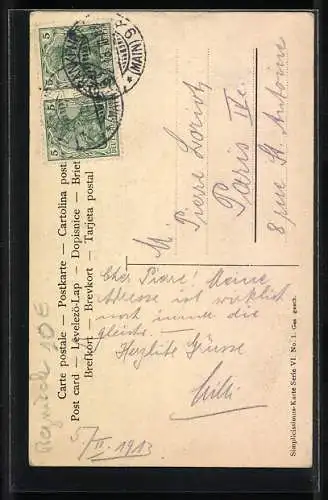 Carte postale — Postkarte — Cartolina post
Post card — Levelező-Lap — Dopisnice — Brief
Brefkort — Brevkort — Tarjeta postal
5 5
5 5
(MAIN)
M. Pierre
Paris IVe.
8 rue St. Antoine
Cher Pierre! Meine
Adresse ist wirklich
noch immer die
gleiche.
Herzlichste Grüsse
Willi
5/II. 1913
10 €
Simplicissimus-Karte Serie VI. No. 1. Ges. gesch.